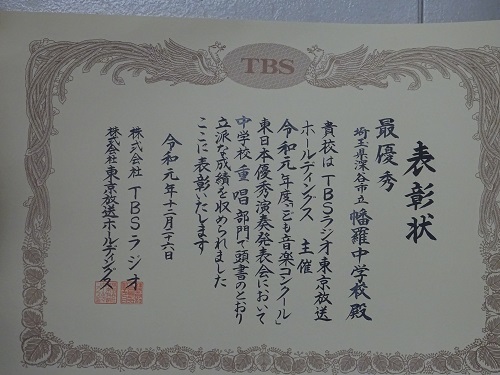 TBS
表彰状
最優秀
埼玉県深谷市立幡羅中学校殿
貴校はTBSラジオ東京放送
ホールディングス 主催
令和元年度「こども音楽コンクール」
東日本優秀演奏発表会において
中学校(重唱部門で頭書のとおり
立派な成績を収められました
ここに表彰いたします
令和元年十二月二十六日
株式会社 TBSラジオ
株式会社 東京放送ホールディングス